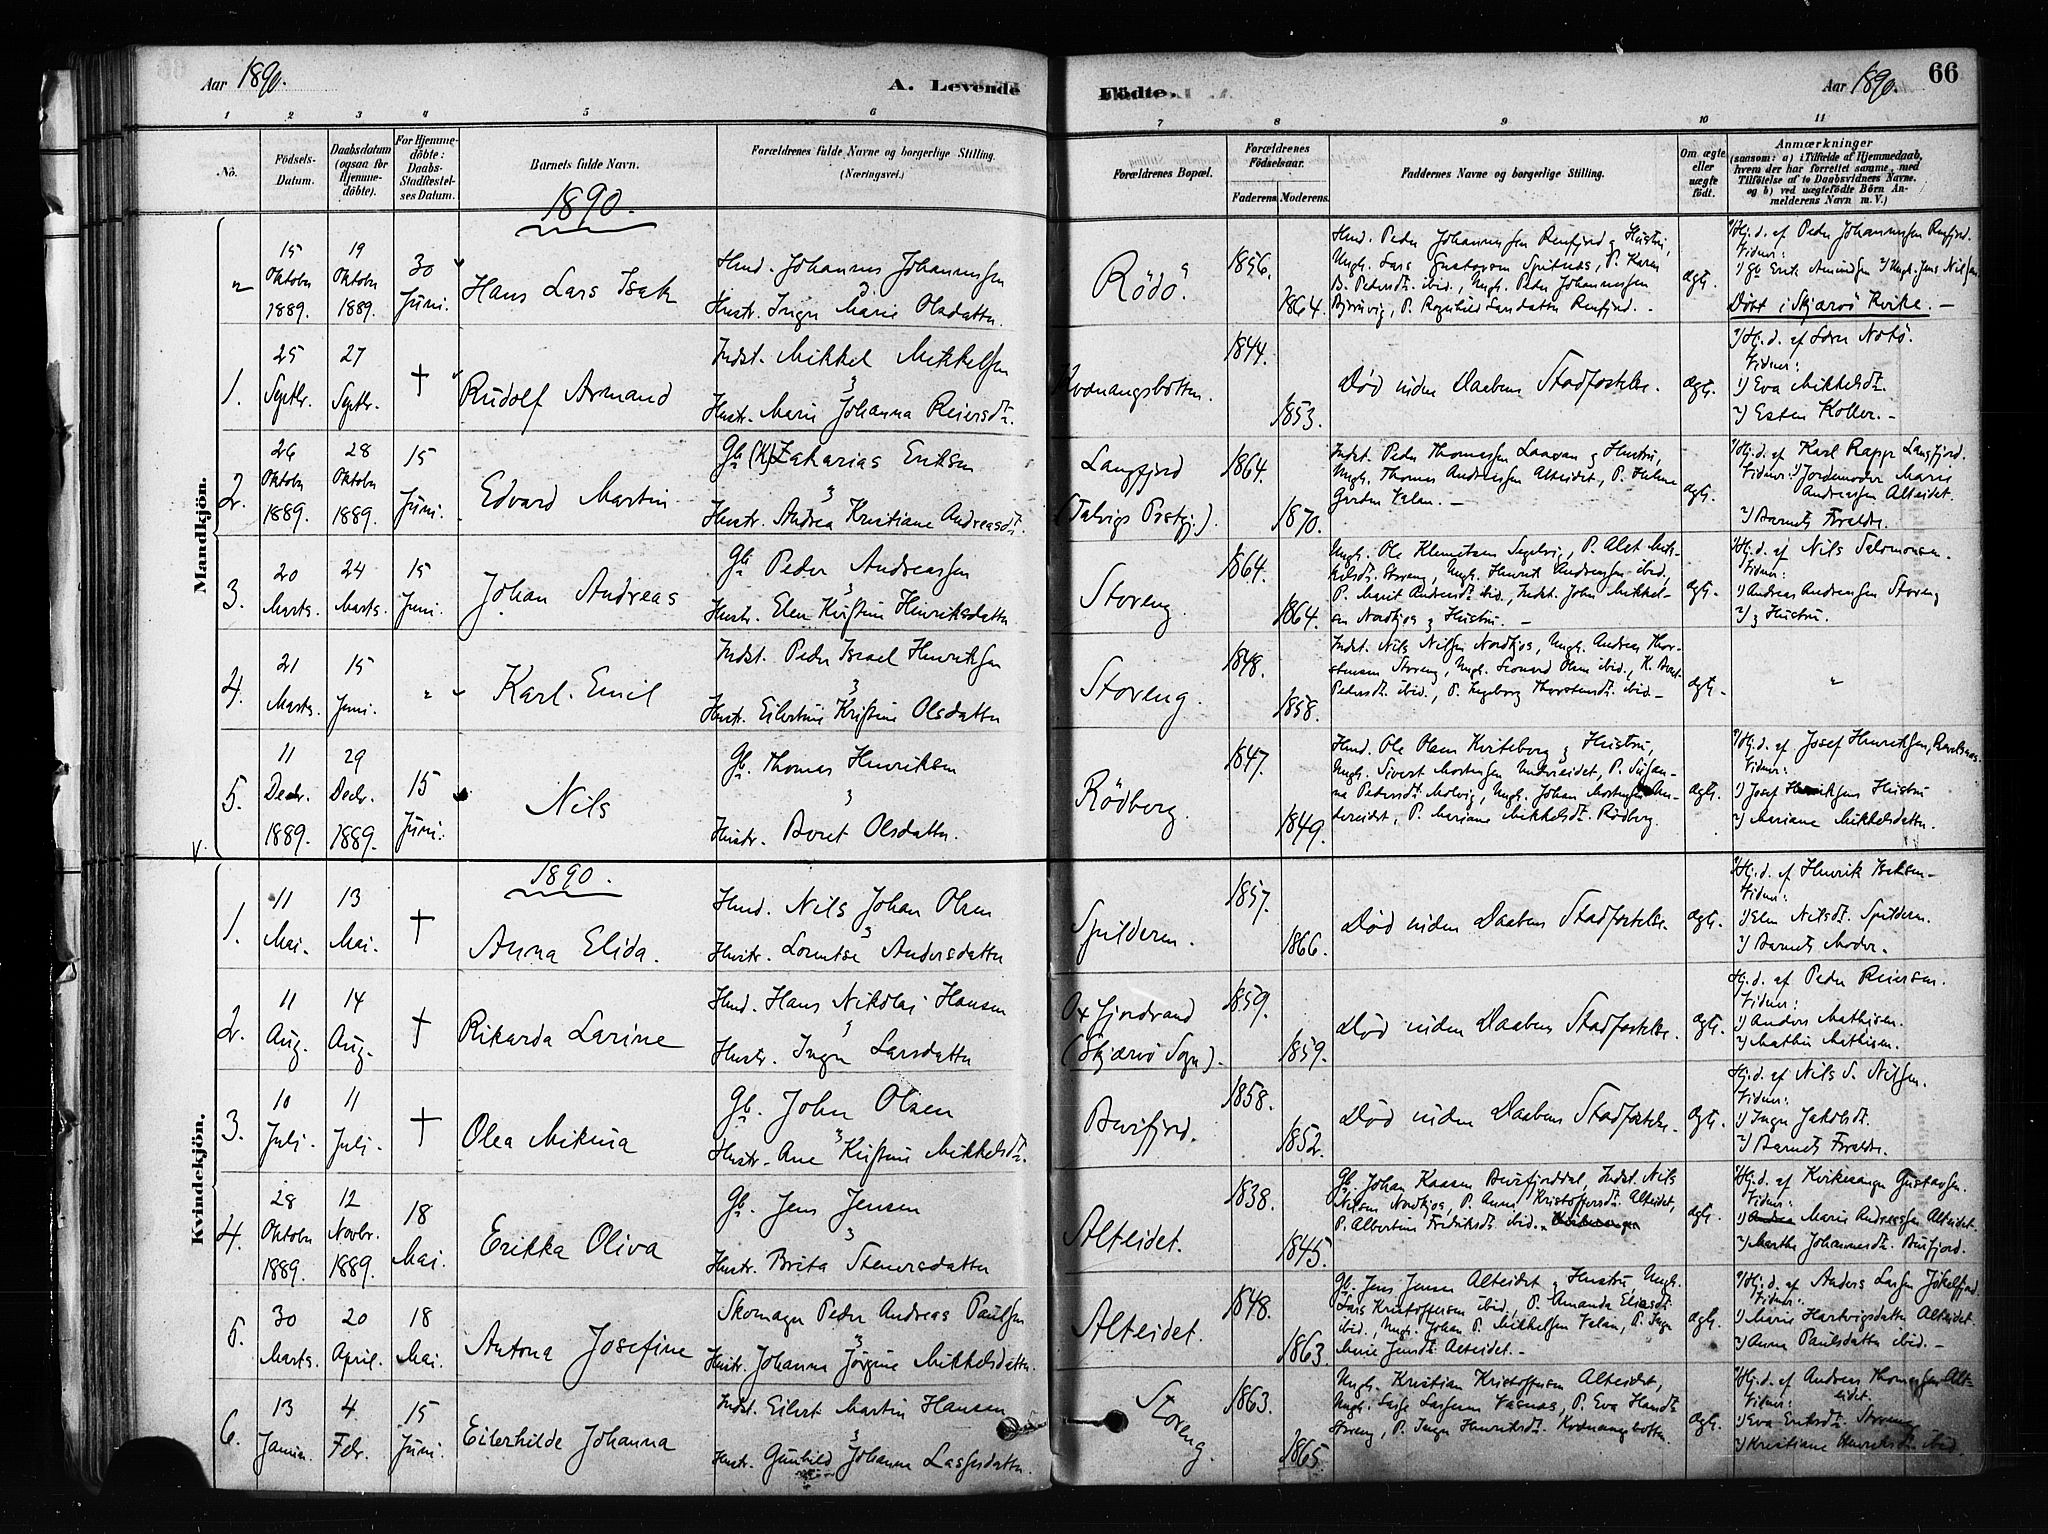 Aar 1890.
A. Levende
Födte.
Aar 1890.
66
1 2 3 4 5 6 7 8 9 10 11
No.
Födsels-Datum.
Daabsdatum (ogsaa for Hjemme-döbte).
For Hjemme-döbte: Daabs-Stadfæstel-ses Datum.
Barnets fulde Navn.
Forældrenes fulde Navne og borgerlige Stilling. (Næringsvei.)
Forældrenes Bopæl.
Forældrenes Födselsaar.
Faderens. Moderens.
Faddernes Navne og borgerlige Stilling.
Om ægte eller uægte födt.
Anmærkninger
(saasom: a) i Tilfælde af Hjemmedaab, hvem der har forrettet samme, med Tilföielse af to Daabsvidners Navne. og b) ved uægtefödte Börn An-melderens Navn m. V.)
Mandkjön.
1890.
15 Oktobr 1889.
19 Oktobr 1889.
30 Juni.
Hans Lars Isak
Hmd. Johannes Johannessen
Hustr. Inger Marie Olsdatter
Rödö.
1856.
1864.
Hmd. Peder Johannessen Renfjord & Hustru,
Ungk. Lars Gustavsen Spitnæs, P. Karen
B. Pedersdtr. ibid., Ungk. Peder Johannessen
ægte.
Hj. d. af Peder Johannessen Renfjord.
Vidner:
1) Gb Erik Amundsen 2) Ungk. Jens Nilsen
Döbt i Skjærvö Kirke. –
1.
25 Septbr.
27 Septbr.
†
Rudolf Armand
Indst. Mikkel Mikkelsen
&
Hustr. Marie Johanna Reiersdtr.
Kvænangsbotten.
1844.
1853.
Död inden Daabens Stadfæstelse.
ægte.
Hj. d. af Lars Notö.
Vidner:
1) Eva Mikkelsdtr.
2) Esten Koller. –
2.
26 Oktobr 1889.
28 Oktobr 1889.
15 Juni.
Edvard Martin
Gb (K) Zakarias Eriksen
&
Hustr. Andrea Kristiane Andreasdtr.
Langfjord
(Talvigs Prstgj.).
1864.
1870.
Indst. Peder Thomassen Laagan & Hustru,
Ungk. Thomas Andreassen Alteidet, P. Helene
ægte.
Hj. d. af Karl Rapp Langfjord.
Vidner: 1) Jordemoder Marie
Andreassen Alteidet.
2) Barnets Forældre.
3.
20 Marts.
24 Marts.
15 Juni.
Johan Andreas
Gb Peder Andreassen
&
Hustr. Elen Kirstine Henriksdatter
Storeng.
1864.
1864.
Ungk. Ole Klemetsen Segelvig, P. Alet Mik-
kelsdtr. Storeng, Ungk. Henrik Andreassen ibid.,
P. Marit Andersdtr. ibid., Indst. John Mikkel-
sen Nordkjos & Hustru. –
ægte.
Hj. d. af Nils Salomonsen.
Vidner:
1) Andreas Andreassen Storeng
2) & Hustru.
4.
21 Marts.
15 Juni.
"
Karl Emil
Indst. Peder Israel Henriksen
&
Hustr. Eilertine Kristine Olsdatter
Storeng.
1848.
1858.
Indst. Nils Nilsen Nordkjos, Ungk. Andreas Thor-
stensen Storeng, Ungk. Leonard Olsen ibid.,
Pedersdtr. ibid., P. Ingeborg Thorstensdtr. ibid –
ægte.
"
5.
11 Decbr. 1889.
29 Decbr. 1889.
15 Juni.
Nils
Gb. Thomas Henriksen
&
Hustr. Beret Olsdatter.
Rödberg.
1847.
1849.
Hmd. Ole Olsen Kviteberg & Hustru,
Ungk. Sivert Mortensen Undereidet, P. Susan-
na Pedersdtr. Molvig, Ungk. Johan Mortensen Un-
dereidet, P. Mariane Mikkelsdtr. Rödberg.
ægte.
Hj. d. af Josef Henriksen,
Vidner:
1) Josef Henriksens Hustru
2) Mariane Mikkelsdatter.
Kvindekjön.
1890.
1.
11 Mai.
13 Mai.
†
Anna Elida.
Hmd. Nils Johan Olsen
&
Hustr. Lorentse Andersdatter
Spilderen.
1857.
1866.
Död inden Daabens Stadfæstelse.
ægte.
Hj. d. af Henrik Isaksen –
Vidner:
1) Elen Nilsdtr. Spilderen.
2) Barnets Moder.
2.
11 Aug.
14 Aug.
†
Rikarda Larine
Hmd. Hans Nikolai Hansen
&
Hustr. Inger Larsdatter
Oxfjordvand
(Skjærvö Sogn).
1859.
1859.
Död inden Daabens Stadfæstelse.
ægte.
Hj. d. af Peder Reiersen.
Vidner:
1) Anders Mathisen.
2) Mathis Mathisen.
3.
10 Juli.
11 Juli.
†
Olea Mikina
Gb. John Olsen
&
Hustr. Ane Kirstine Mikkelsdtr.
Burfjord.
1858.
1852.
Död inden Daabens Stadfæstelse.
ægte.
Hj. d. af Nils S. Nilsen.
Vidner:
1) Inger Jakobsdtr.
2) Barnets Forældre.
4.
28 Oktobr 1889.
12 Novbr. 1889.
18 Mai.
Erikka Oliva
Gb. Jens Jensen
&
Hustr. Brita Stenersdatter
Alteidet.
1838.
1845.
Gb. Johan Kaasen Burfjorddal, Indst. Nils
Nilsen Nordkjos, P. Anne Kristoffersdtr. Alteidet,
P. Albertine Fredriksdtr. ibid.
ægte.
Hj. d. af Kirkesanger Gustavsen.
Vidner:
1) Marie Andreassen Alteidet.
2) Marthe Johannesdtr. Burfjord.
5.
30 Marts.
20 April.
18 Mai.
Antona Josefine
Skomager Peder Andreas Paulsen
&
Hustr. Johanna Jörgine Mikkelsdatter.
Alteidet.
1848.
1863.
Gb. Jens Jensen Alteidet & Hustru, Ungk.
Lars Kristoffersen ibid., P. Amanda Eliasdtr.
ibid., Ungk. Johan P. Mikkelsen Valan, P. Inger
Marie Jensdtr. Alteidet. –
ægte.
Hj. d. af Anders Larsen Jökelfjord.
Vidner:
1) Marie Hartvigsdatter Alteidet.
2) Anna Paulsdatter ibid. –
6.
13 Januar.
4 Febr.
15 Juni.
Eilerhilde Johanna
Indst. Eilert Martin Hansen
&
Hustr. Gunhild Johanna Lassesdatter.
Storeng.
1863.
1865.
Ungk. Kristian Kristoffersen Alteidet,
Ungk. Lasse Larsen Vasnæs, P. Eva Hansdtr.
Storeng, P. Inger Henriksdtr. Kvænangsbotten.
ægte.
Hj. d. af Andreas Thomassen Alt-
eidet.
Vidner:
1) Eva Eriksdtr. Storeng
2) Kristiane Henriksdtr. ibid.